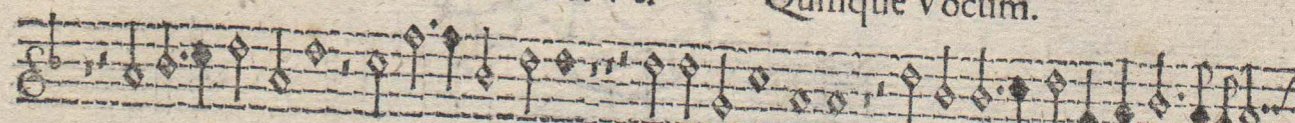 Quinque Vocum.